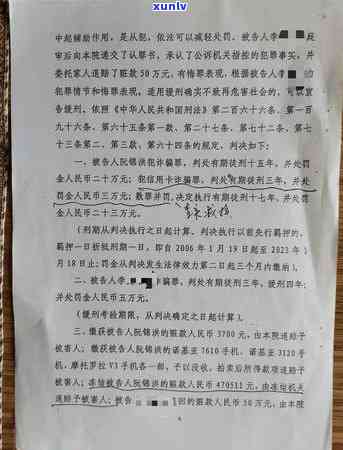 讯律网 xunlv
中起辅助作用，是从犯，依法可以减轻处罚。被告人李
审后向本院递交了认罪书，承认了公诉机关指控的犯罪事实，并
委托家人退赔了赃款50万元，有悔罪表现，根据被告人李
犯罪情节和悔罪表现，适用缓刑确实不致再危害社会的，可以宣
告缓刑。依照《中华人民共和国刑法》第二百六十六条、第一百
九十六条、第六十五条第一款、第二十七条、第七十二条、第七
十三条第二、第三款、第六十四条的规定，判决如下：
一、被告人阮锦洪犯诈骗罪，判处有期徒刑十五年，并处罚
金人民币二十万元；犯信用卡诈骗罪，判处有期徒刑三年，并处
罚金人民币三万元；数罪并罚，决定执行有期徒刑十七年，并处罚
金人民币二十三万元。
（刑期从判决执行之日起计算，判决执行以前先行羁押的，
羁押一日折抵刑期一日，即自2006年1月19日起至2023年1
月18日止；罚金从判决发生法律效力第二日起三个月内缴纳）。
二、被告人李 诈骗罪，判处有期徒刑三年，缓刑四年；
并处罚金人民币五万元。
（缓刑考验期限，从判决确定之日起计算）。
三、缴获被告人阮锦洪的赃款人民币3700元，由本院退赔予
被害人；缴获被告人阮锦洪的诺基亚7610手机、诺基亚3120手
机、摩托罗拉V3手机各一部，予以没收，拍卖后所得款项退赔予
被害人；冻结被告人阮锦洪的赃款人民币470511元，由冻结机关
退赔予被害人；被告 回的赃款人民币50万元，由本院